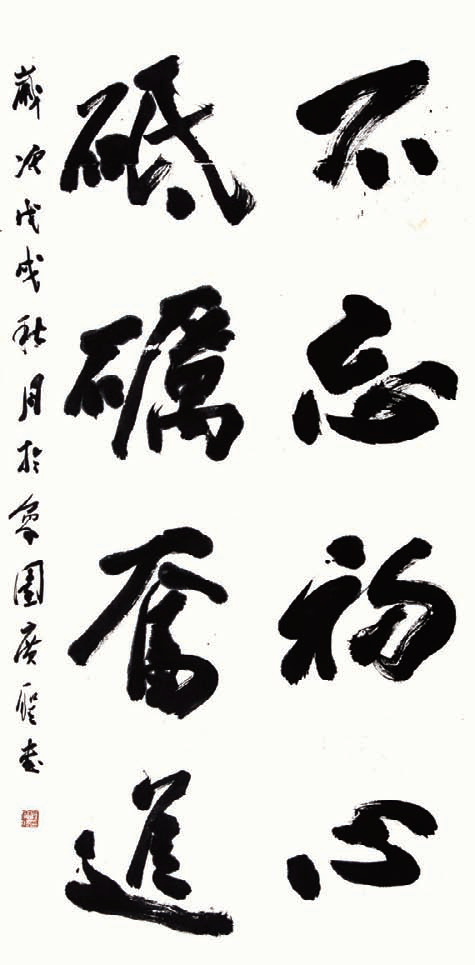 不忘初心
砥礪奮進
歲次戊戌秋月於
園廣
書